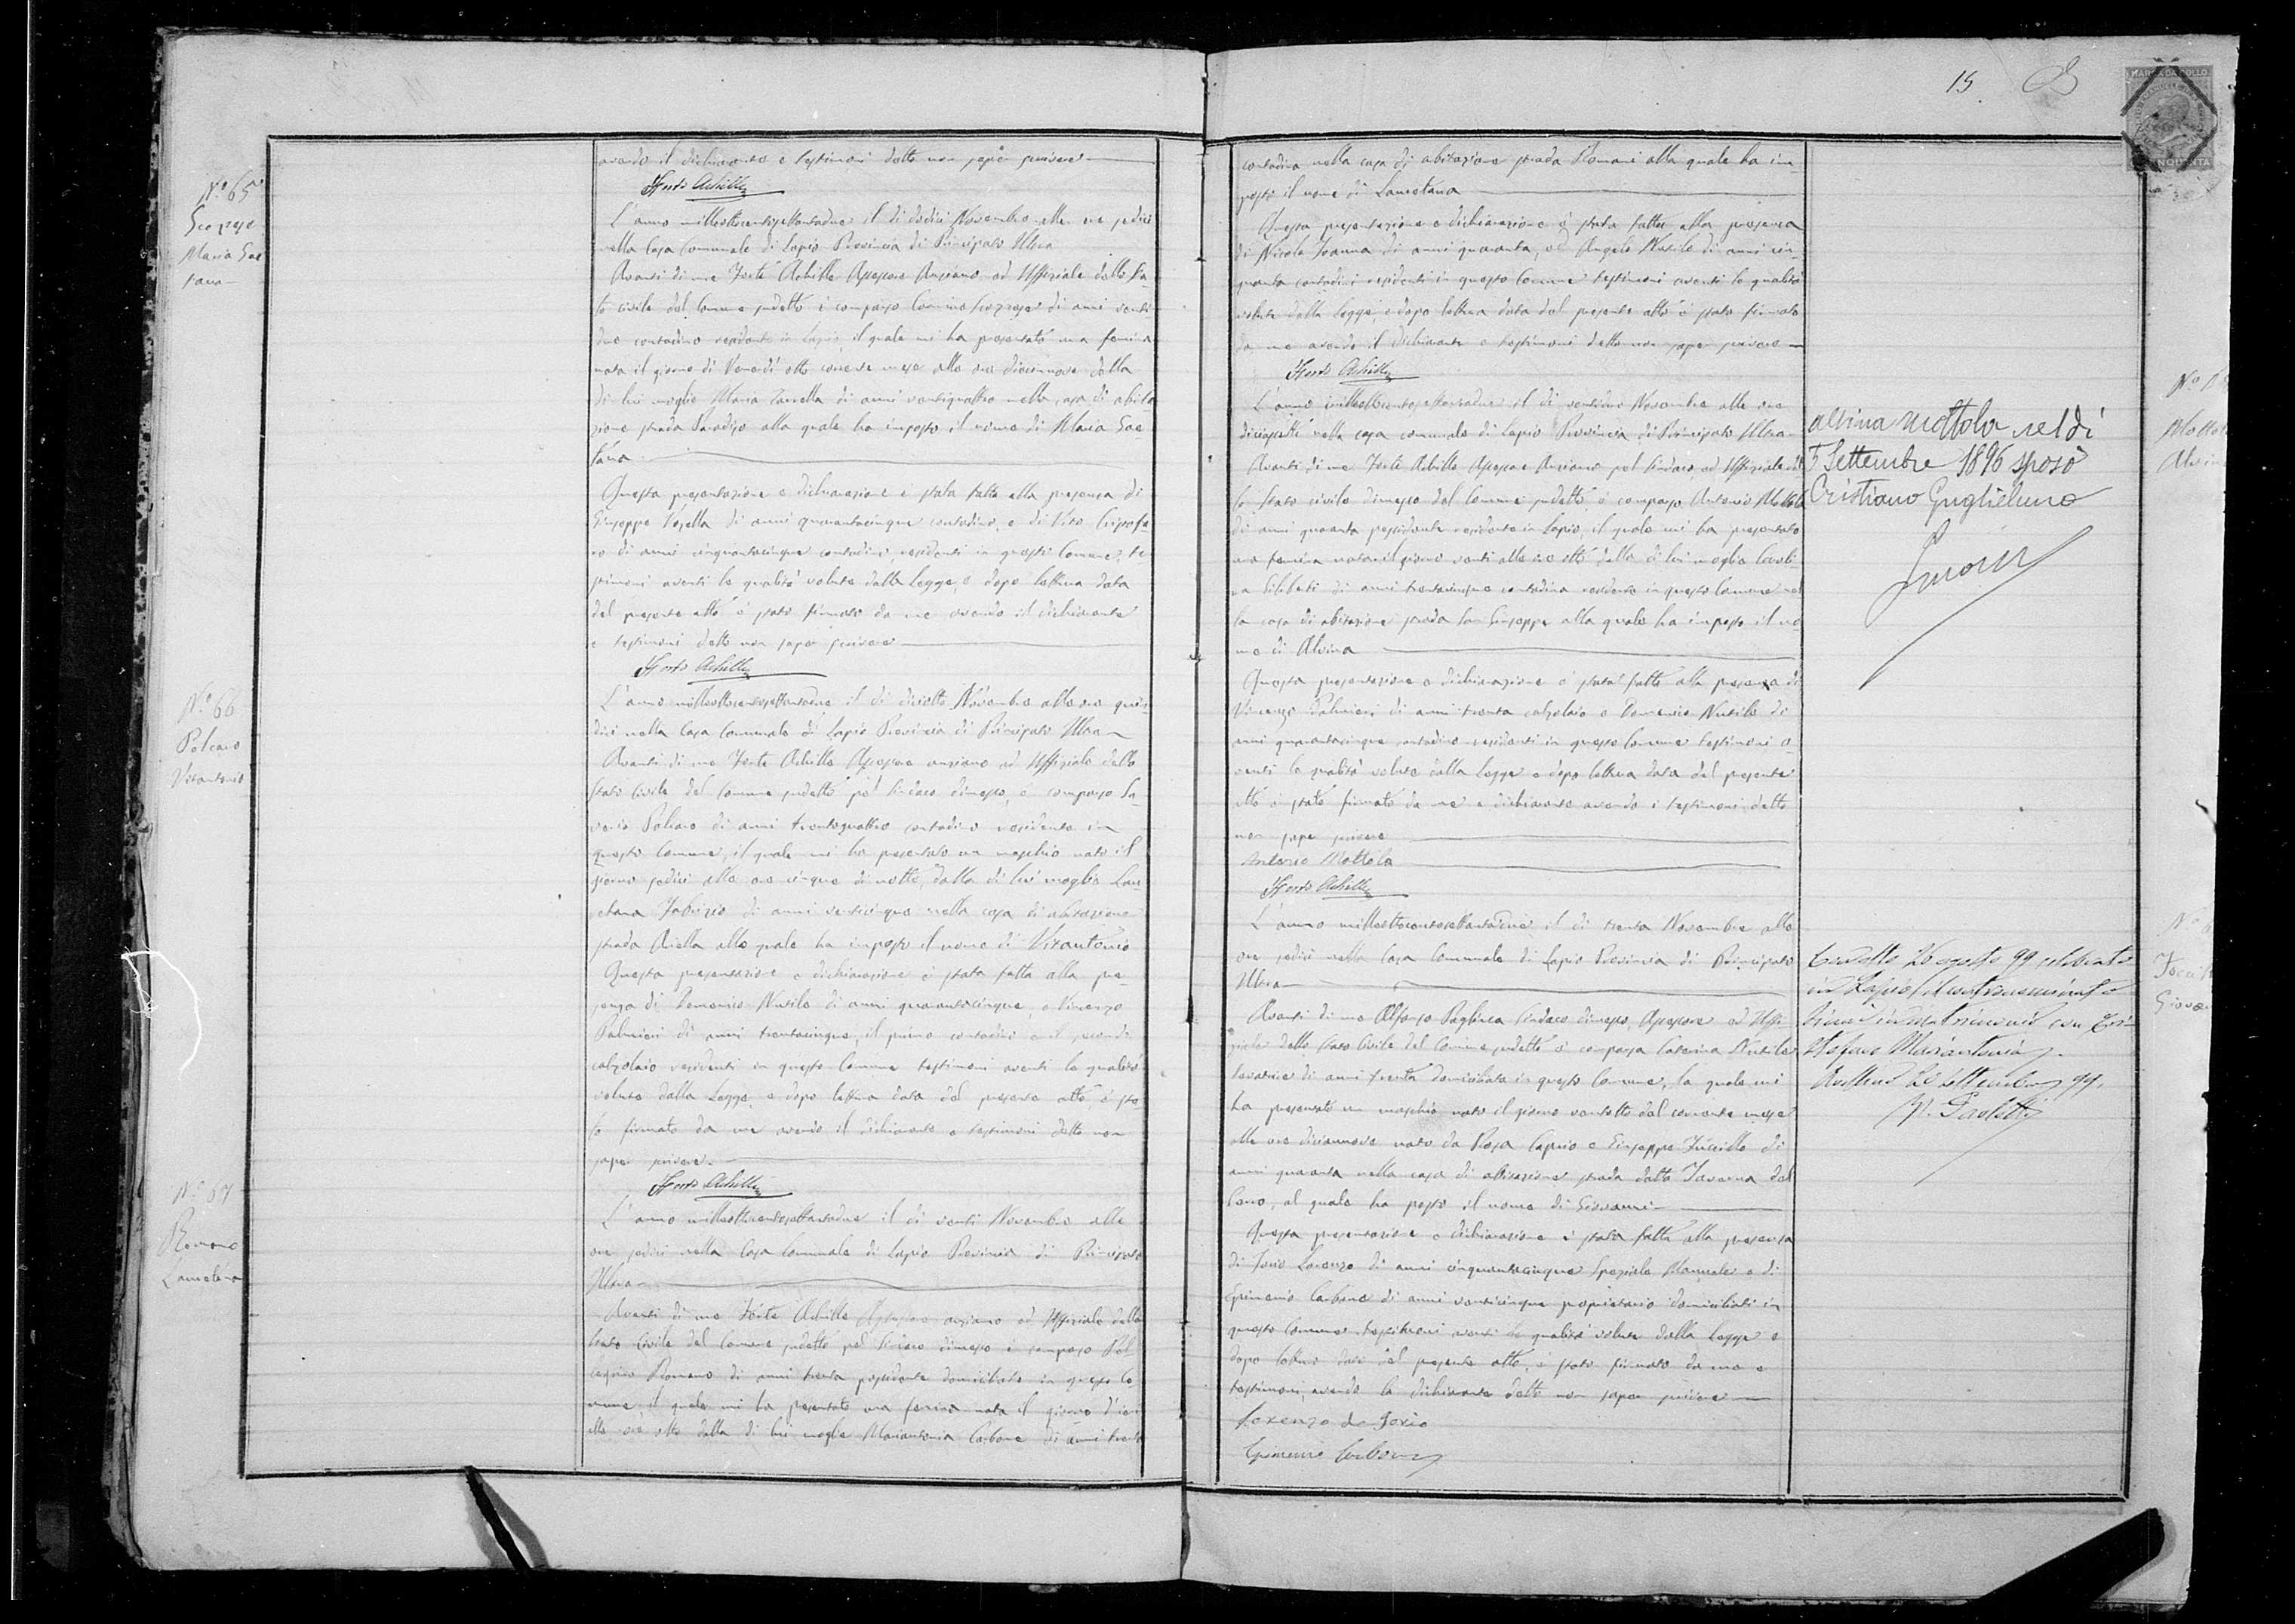 avendo il dichiarante e testimoni detto non saper scrivere
Forte Achille
N.° 65
Scozzese
Maria Gae
tana
L'anno milleottocentosettantadue il dì dodici Novembre alle ore sedici
nella Casa Comunale di Lapio Provincia di Principato Ultra
Avanti di me Forte Achille Assessore Anziano ed Uffiziale dello Sta-
to civile del Comune sudetto è comparso Carmine Scozzese di anni venti
due contadino residente in Lapio, il quale mi ha presentato una femina
nata il giorno di Venerdì otto corrente mese alle ore diciannove dalla
di lui moglie Maria Zarrella di anni ventiquattro nella casa di abita-
zione strada Paradiso alla quale ha imposto il nome di Maria Gae-
tana
Questa presentazione e dichiarazione è stata fatta alla presenza di
Giuseppe Vasella di anni quarantacinque contadino, e di Vito
di anni cinquantacinque contadini, residenti in questo Comune, te-
stimoni aventi le qualità volute dalla Legge, e dopo lettura data
del presente atto è stato firmato da me avendo il dichiarante
e testimoni detto non saper scrivere
Forte Achille
N.° 66
Polcaro
Vitantonio
L'anno milleottocentosettantadue il dì diciotto Novembre alle ore quin-
dici nella Casa Comunale di Lapio Provincia di Principato Ultra
Avanti di me Forte Achille Assessore anziano ed Uffiziale dello
Stato Civile del Comune sudetto pel Sindaco dimesso, è comparso Sa-
verio Polcaro di anni trentaquattro contadino residente in
questo Comune, il quale mi ha presentato un maschio nato il
giorno sedici alle ore cinque di notte, dalla di lui moglie Lau-
retana Fabrizio di anni venticinque nella casa di abitazione
strada Aiella allo quale ha imposto il nome di Vitantonio
Questa presentazione e dichiarazione è stata fatta alla pre-
senza di Domenico Nutile di anni quarantacinque, e Vincenzo
Palmieri di anni trentacinque, il primo contadino e il secondo
calzolaio residenti in questo Comune testimoni aventi le qualità
volute dalla Legge, e dopo lettura data del presente atto è sta-
to firmato da me avendo il dichiarante e testimoni detto non
saper scrivere
Forte Achille
N.° 67
Romano
Lauretana
L'anno milleottocentosettantadue il dì venti Novembre alle
ore sedici nella Casa Comunale di Lapio Provincia di Principato
Ultra
Avanti di me Forte Achille Assessore anziano ed Uffiziale dello
Stato Civile del Comune sudetto pel Sindaco dimesso è comparso Pel-
legrino Romano di anni trenta possidente domiciliato in questo Co-
mune il quale mi ha presentato una femina nata il giorno d'ieri
alle ore otto dalla di lui moglie Mariantonia Carbone di anni trenta
15
MARCA DA BOLLO
contadina nella casa di abitazione strada Romani alla quale ha im-
posto il nome di Lauretana
Questa presentazione e dichiarazione è stata fatta alla presenza
di Nicola Ioanna di anni quaranta, ed Angelo Nutile di anni cin-
quanta contadini residenti in questo Comune testimoni aventi le qualità
volute dalla Legge, e dopo lettura data del presente atto è stato firmato
da me avendo il dichiarante e testimoni detto non saper scrivere
Forte Achille
L'anno milleottocentosettantadue il dì ventidue Novembre alle ore
diciassette nella casa comunale di Lapio Provincia di Principato Ultra
Avanti di me Forte Achille Assessore Anziano pel Sindaco, ed Uffiziale del-
lo Stato civile dimesso del Comune sudetto è comparso Antonio Mottola
di anni quaranta possidente residente in Lapio, il quale mi ha presentato
una femina nata il giorno venti alle ore otto dalla di lui moglie Caroli-
na Ciliberti di anni trentacinque contadina residente in questo Comune nel-
la casa di abitazione strada San Giuseppe alla quale ha imposto il no-
me di Alvina
Questa presentazione e dichiarazione è stata fatta alla presenza di
Vincenzo Palmieri di anni trenta calzolaio e Domenico Nutile di
anni quarantacinque contadino residenti in questo Comune testimoni a-
venti le qualità volute dalla Legge e dopo lettura data del presente
atto è stato firmato da me e dichiarante avendo i testimoni detto
non saper scrivere
Antonio Mottola
Forte Achille
L'anno milleottocentosettantadue il dì trenta Novembre alle
ore sedici nella Casa Comunale di Lapio Provincia di Principato
Ultra
Avanti di me Alfonso Paglinca Sindaco dimesso, Assessore ed Uffi-
ziale dello Stato Civile del Comune sudetto è comparsa Caterina Nutile
levatrice di anni trenta domiciliata in questo Comune, la quale mi
ha presentato un maschio nato il giorno ventotto del corrente mese
alle ore diciannove nato da Rosa Caprio e Giuseppe Fuccillo di
anni quaranta nella casa di abitazione strada detta Taverna del
Cano, al quale ha posto il nome di Giovanni
Questa presentazione e dichiarazione è stata fatta alla presenza
di Iorio Lorenzo di anni cinquantacinque Speziale Manuale e di
Epimenio Carbone di anni venticinque proprietario domiciliati in
questo Comune testimoni aventi le qualità volute dalla Legge e
dopo lettura data del presente atto, è stato firmato da me e
testimoni, avendo la dichiarante detto non saper scrivere
Lorenzo de Iorio
Epimenio Carbone
Alvina Mottola nel dì
5 Settembre 1896 sposò
Cristiano Guglielmo
26 agosto 99 celebrato
in Lapio
in matrimonio con
Stefano Mariantonia
Avellino 20 settembre 99
Paoletti
N.°
Mottola
Alvina
N.°
Giovan